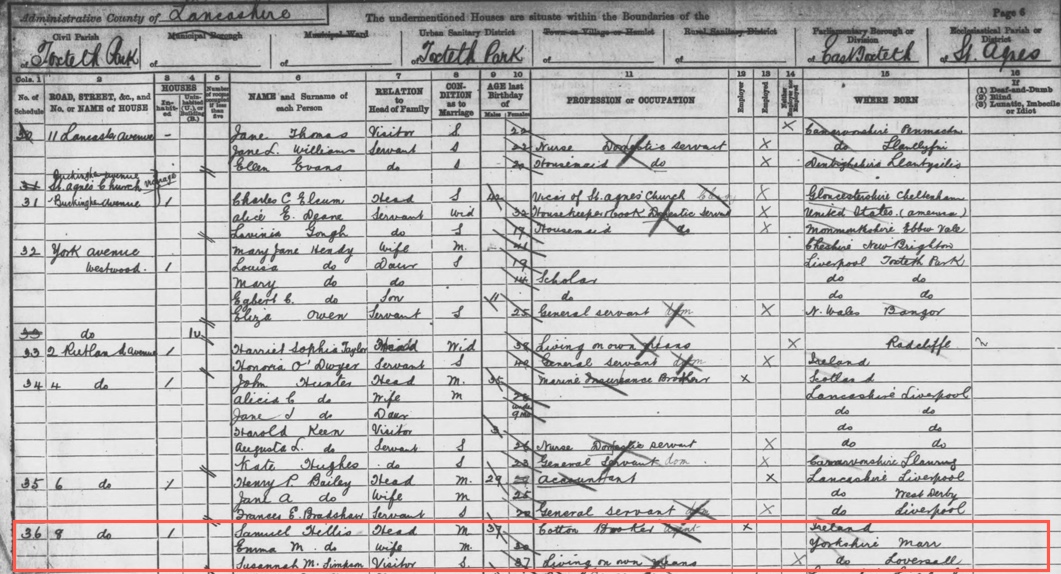 Administrative County of Lancashire The undermentioned Houses are situate within the Boundaries of the Page 6
Civil Parish Municipal Borough Municipal Ward Urban Sanitary District Town or Village or Hamlet Rural Sanitary District Parliamentary Borough or Division Ecclesiastical Parish or District
of Toxteth Park of of of Toxteth Park of of of East Toxteth of St. Agnes
Cols. 1 2 3 4 5 6 7 8 9 10 11 12 13 14 15 16
No. of Schedule ROAD, STREET, &c., and No. or NAME of HOUSE HOUSES Inhabited Uninhabited (U.), or Building (B.) Number of rooms occupied if less than five NAME and Surname of each Person RELATION to Head of Family CONDITION as to Marriage AGE last Birthday of Males Females PROFESSION or OCCUPATION Employer Employed Neither Employer nor Employed WHERE BORN If (1) Deaf-and-Dumb (2) Blind (3) Lunatic, Imbecile or Idiot
30 11 Lancaster Avenue Jane Thomas Visitor S X Carnarvonshire Penmachno
Jane L. Williams Servant S 22 Nurse Domestic servant X do Llanllyfni
Ellen Evans do S Housemaid do X Denbighshire Llantysilio
Buckingham Avenue
31 St. Agnes Church Vicarage
31 Buckingham Avenue 1 Charles C Elcum Head S Vicar of St. Agnes Church X Gloucestershire Cheltenham
Alice E. Deane Servant Wid 32 Housekeeper Cook Domestic Servant X United States (America)
Lavinia Gough do S 19 Housemaid do X Monmouthshire Ebbw Vale
32 York Avenue Mary Jane Hendy Wife M. Cheshire New Brighton
Westwood. 1 Louisa do Daur S 19 Liverpool Toxteth Park
Mary do do 14 Scholar do do
Egbert E. do Son 11 do do do
Eliza Owen Servant S 25 General servant dom X N. Wales Bangor
33 do 1u
33 2 Rutland Avenue 1 Harriet Sophia Taylor Head Wid 38 Living on own means X Radcliffe
Honoria O'Dwyer Servant S General servant dom X Ireland
34 4 do 1 John Hunter Head M. 35 Marine Insurance Broker X Scotland
Alicia C do Wife M Lancashire Liverpool
Jane J do Daur do do
Harold Keen Visitor do do
Augusta L. do Servant S 26 Nurse Domestic servant X do do
Kate Hughes do S 23 General Servant dom X Carnarvonshire
35 6 do 1 Henry P. Bailey Head M. 29 Accountant X Lancashire Liverpool
Jane A do Wife M 25 do West Derby
Frances E. Bradshaw Servant S General servant dom X do Liverpool
36 8 do 1 Samuel Hillis Head M 37 Cotton Broker X Ireland
Emma M. do Wife M. 30 Yorkshire Marr
Susannah M. Simpson Visitor S 37 Living on own means X do Loversall